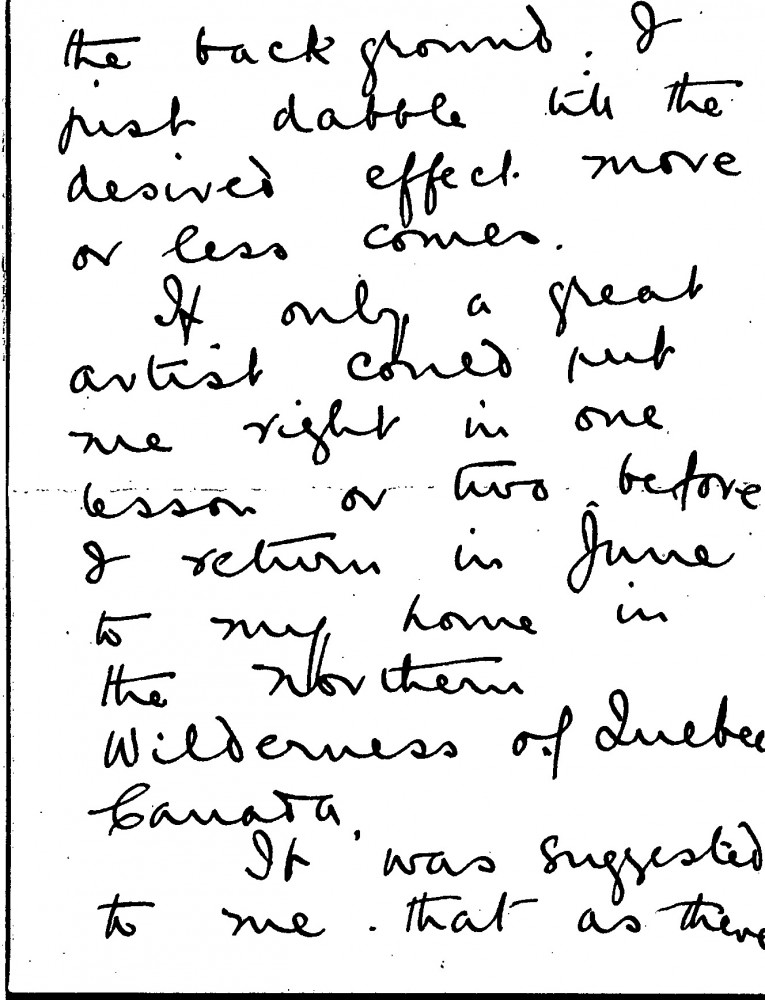 the background. I
just dabble till the
desired effect more
or less comes.
If only a great
artist could put
me right in one
lesson or two before
I return in June
to my home in
the Northern
Wilderness of Quebec
Canada,
It was suggested
to me that as there